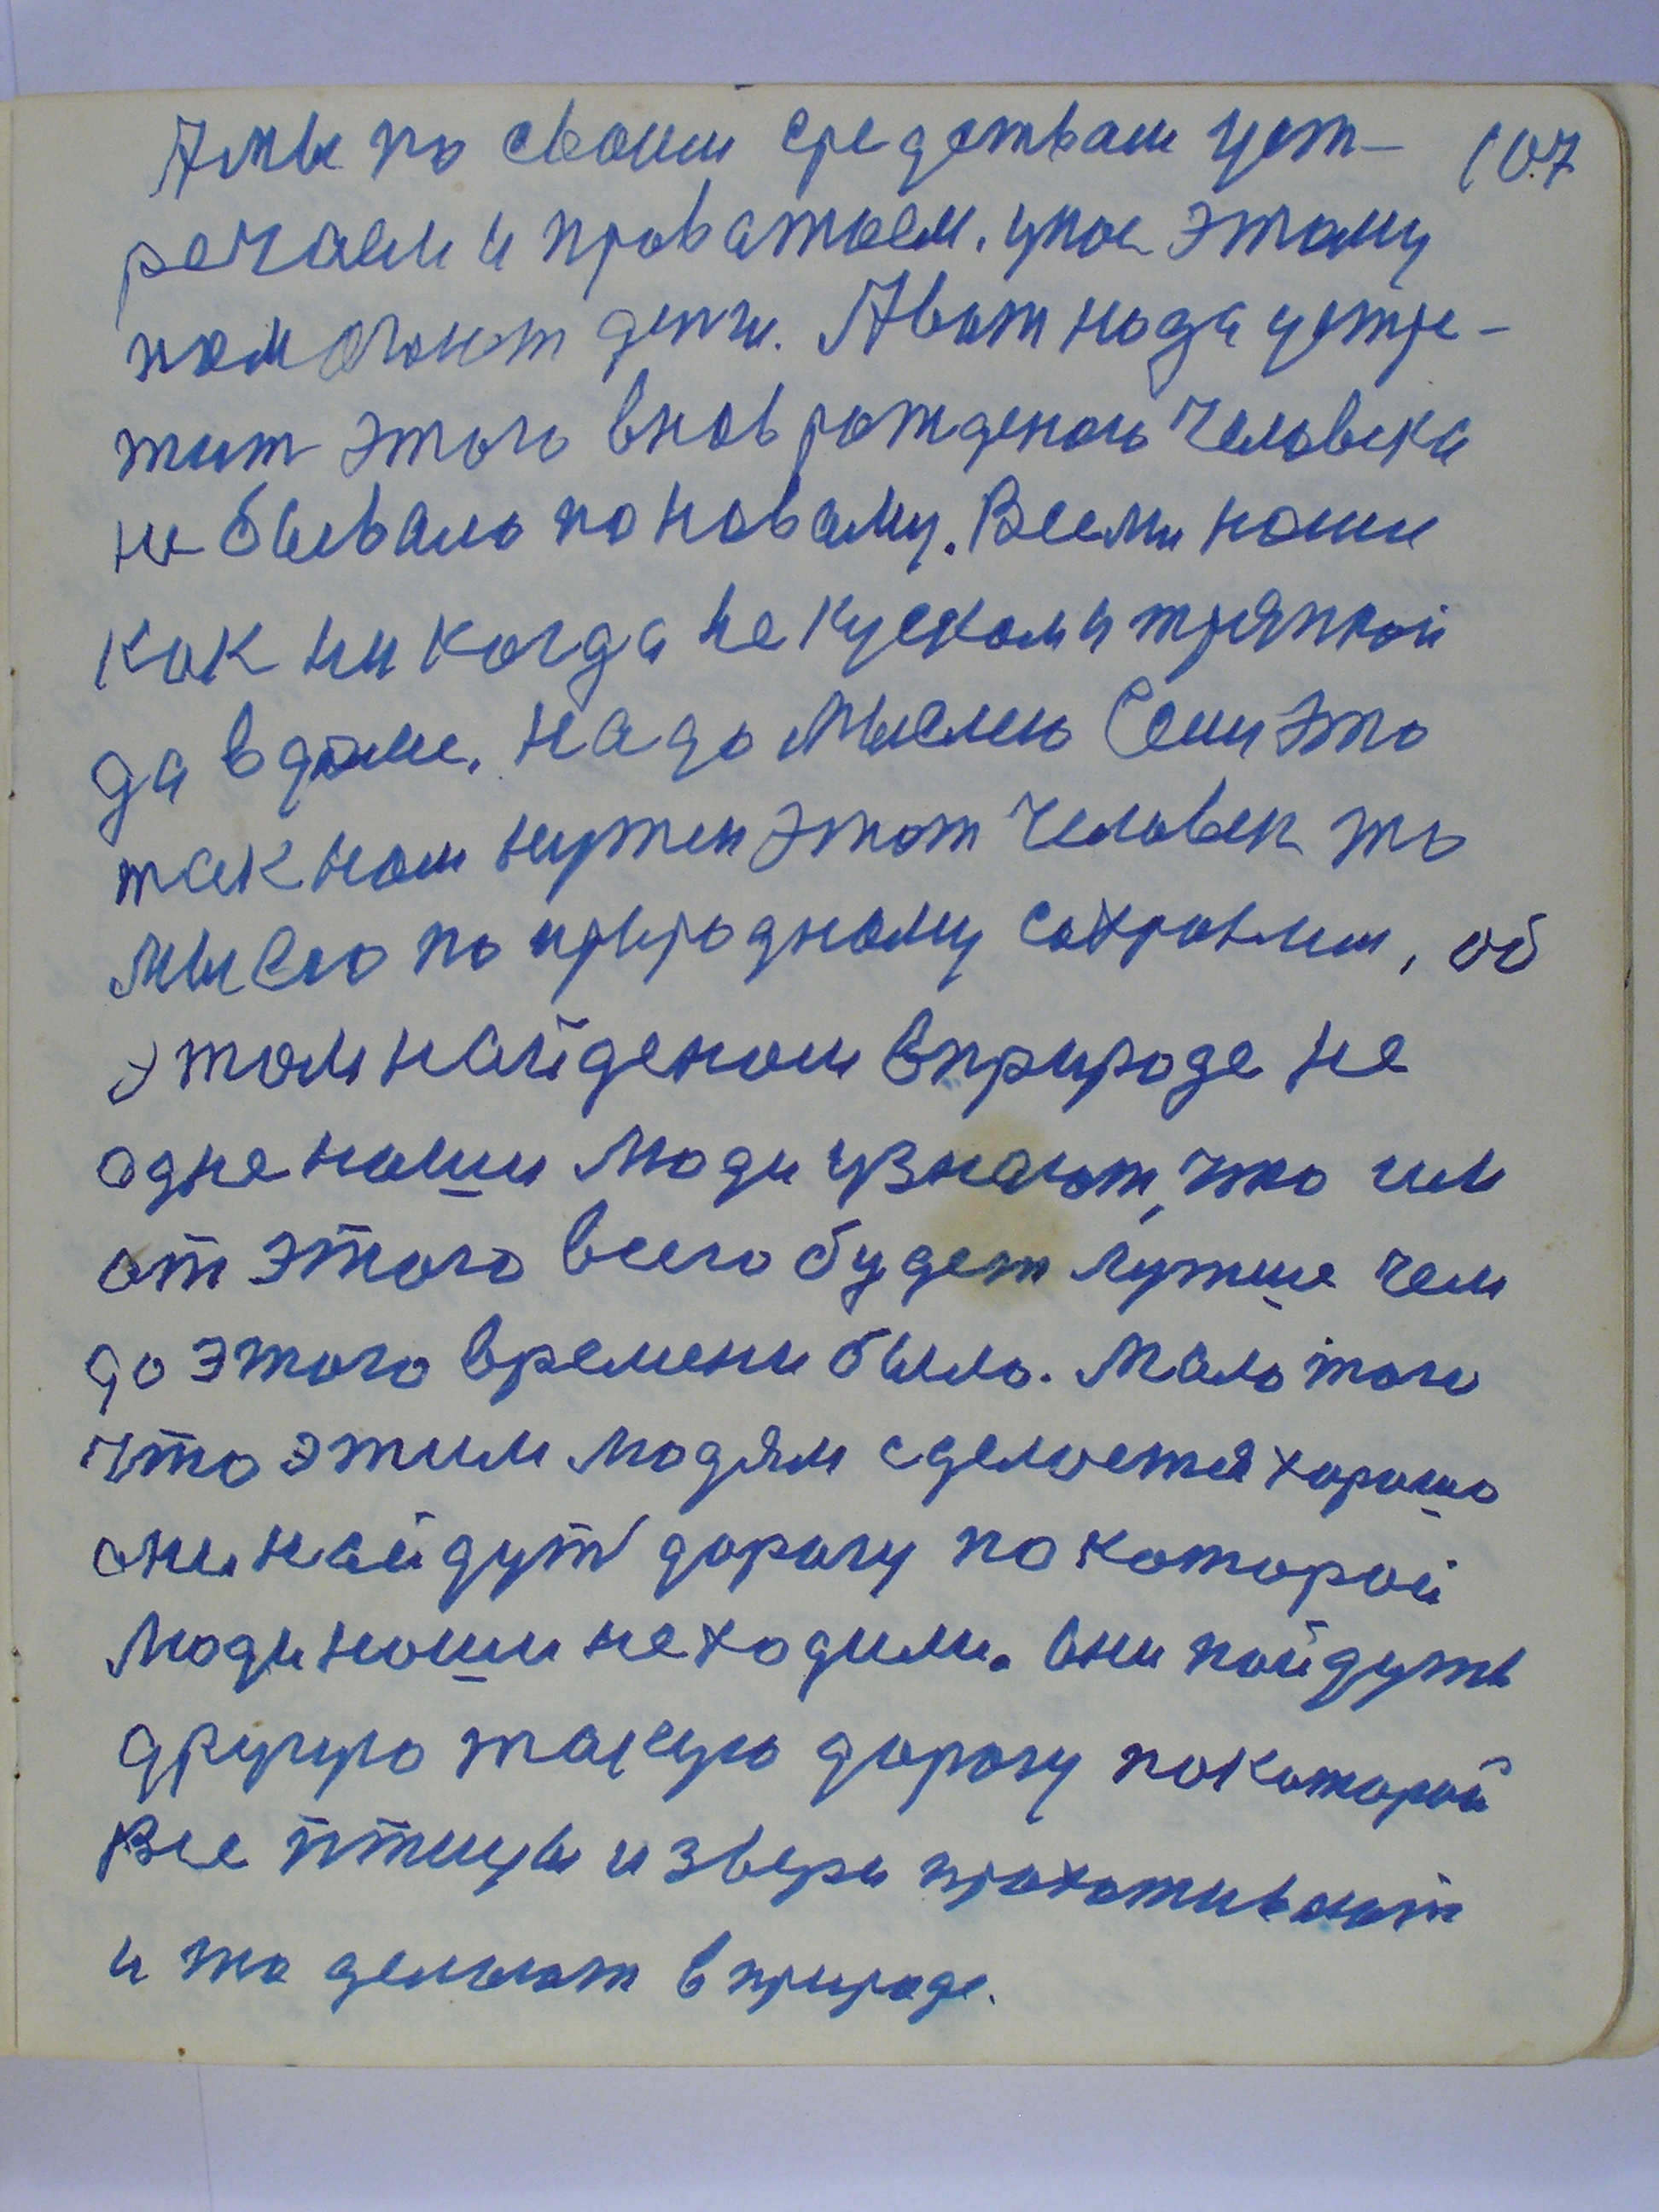 А мы по своим средствам уст- 107
речаем и проважаем. у нас этому
помогают дети. А вот нада устре-
тит этого внов рожденого человека
не бывало по новаму. Всеми нами
как никогда не куском и тряпкой
да в доме. Надо мыслию Если это
так нам нужен этот человек то
мы его по природному сохраним, об
этом найденом в природе не
одне наши люди узнают, что им
от этого всего будет лутше чем
до этого времени было. Мало того
что этим людям сделается хорошо
они найдут дорогу по которой
люди наши не ходили. Они пойдуть
другую такую дорогу по которой
все птицы и звери прахаживают
и то делают в природе.